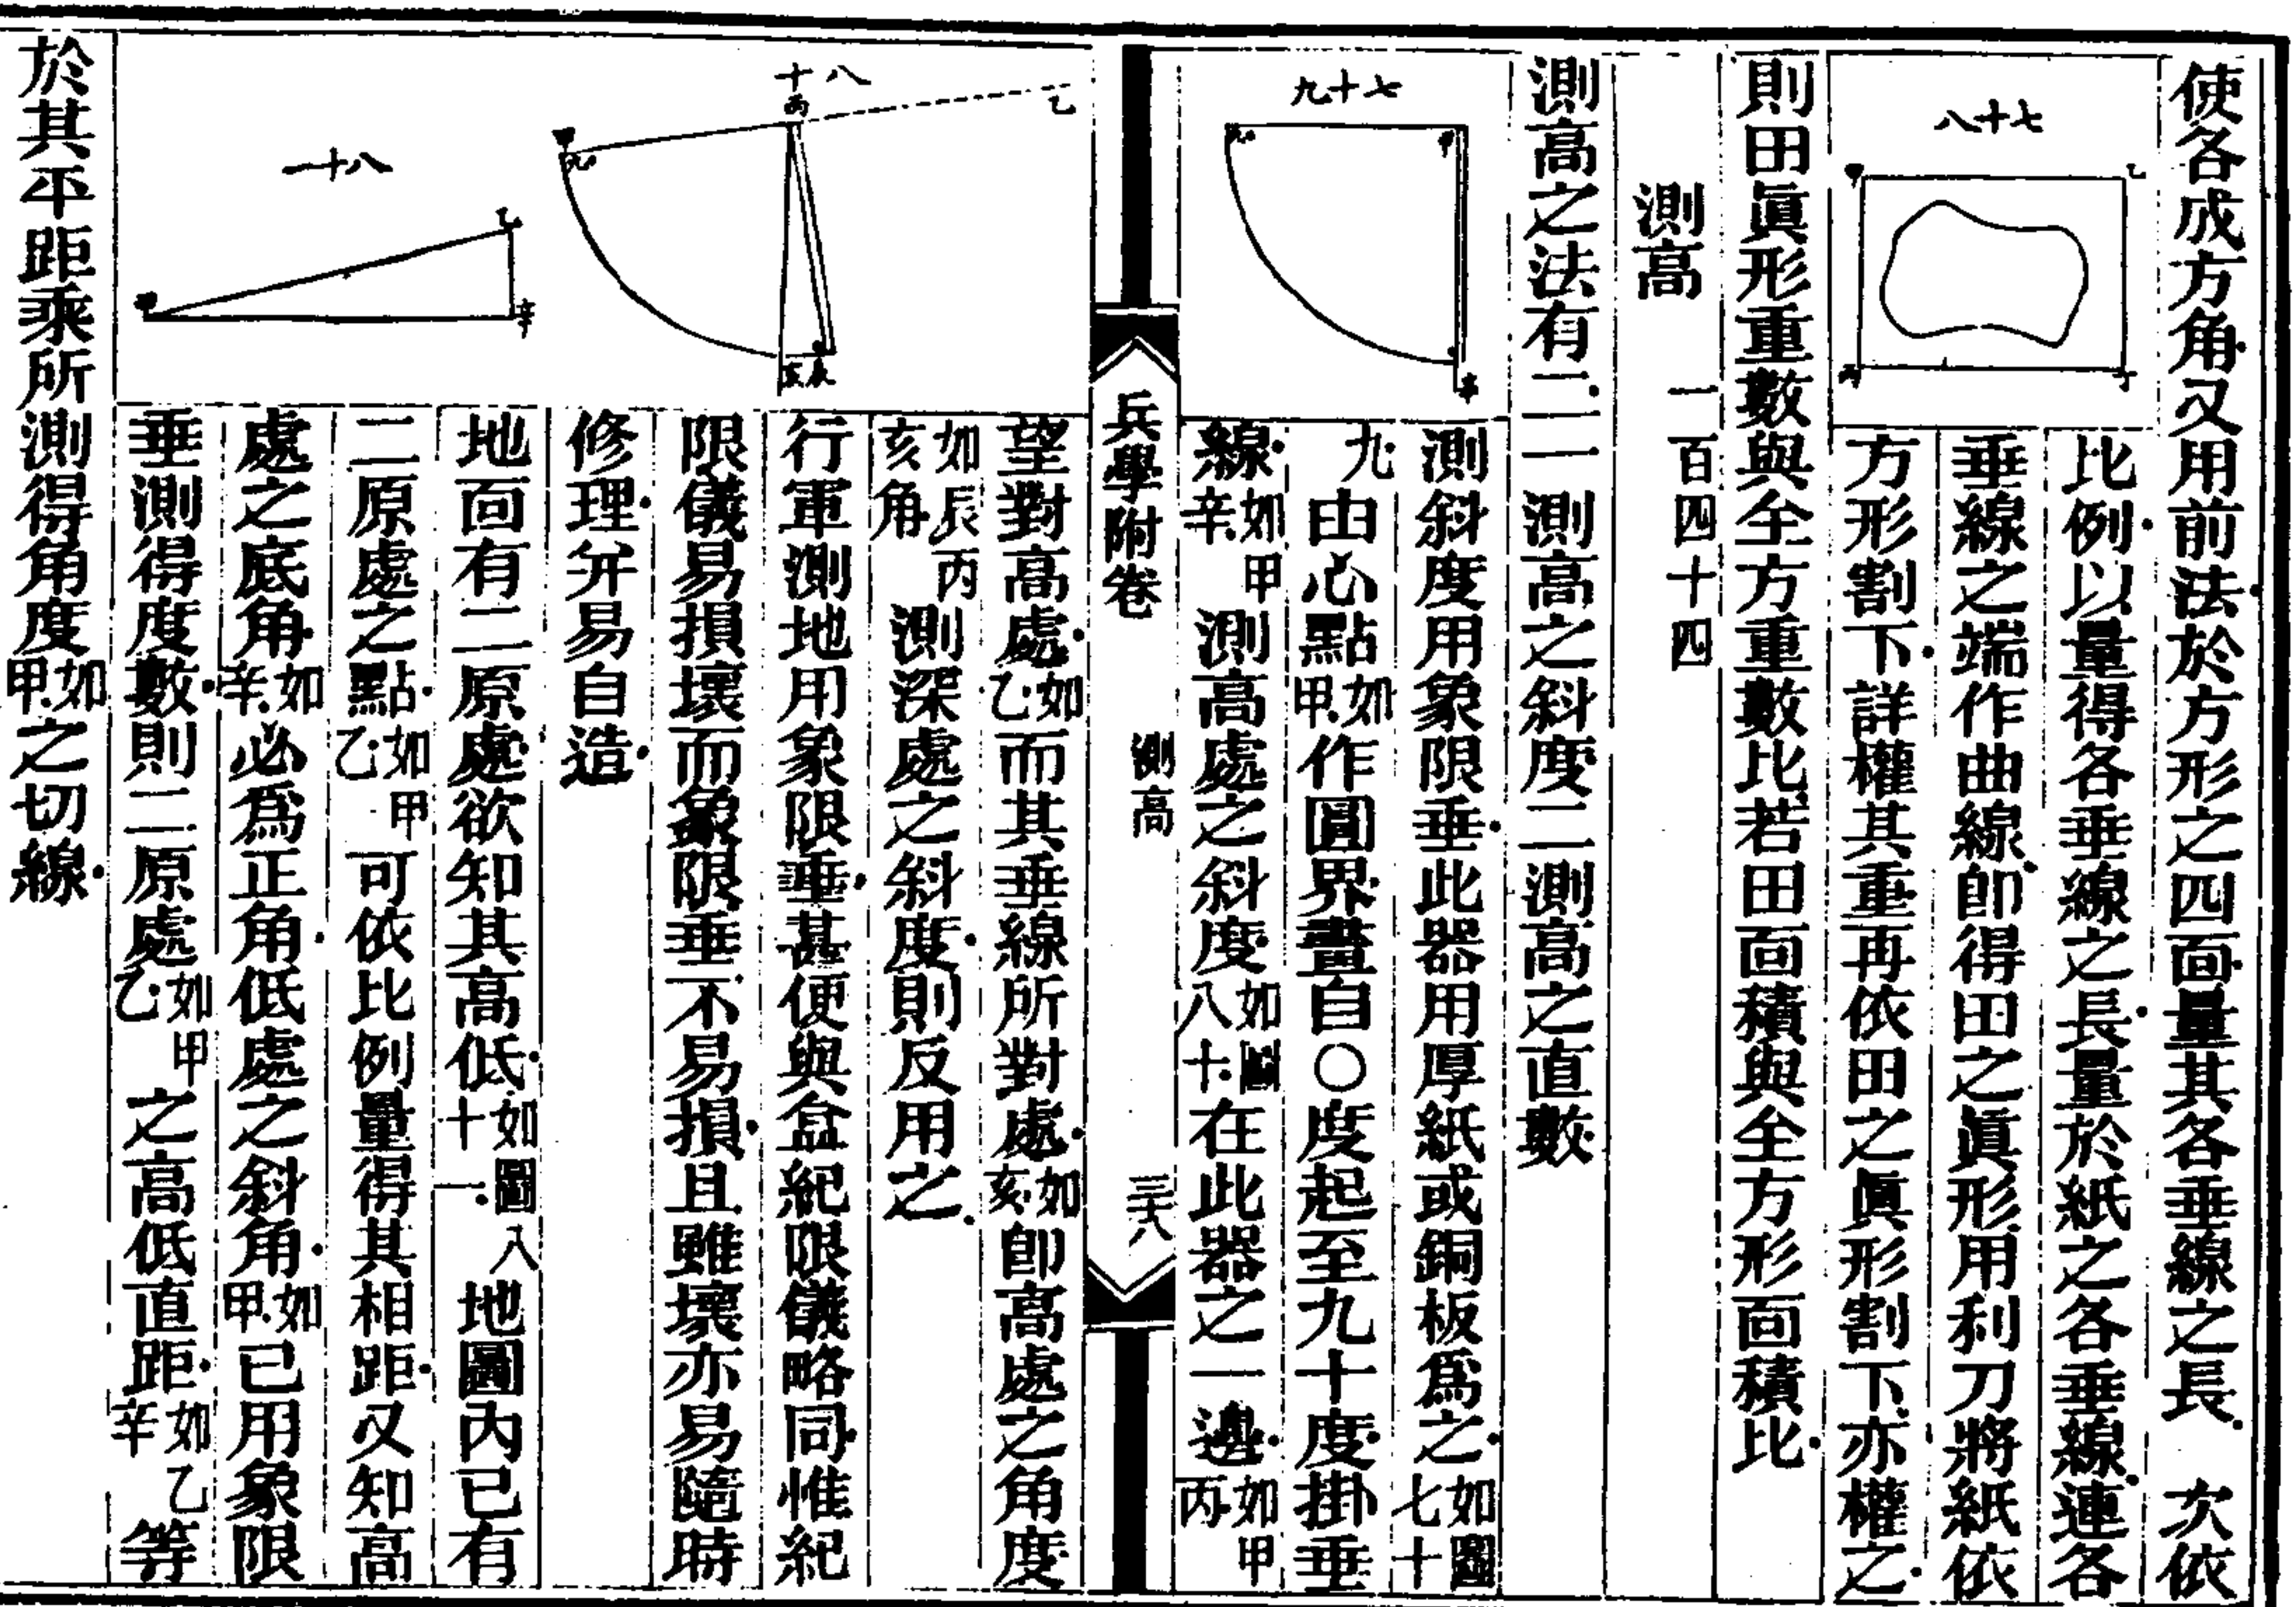 使各成方角又用前法於方形之四面量其各垂線之長　次依
七十八
乙
甲
丁
丙
比例以量得各垂線之長量於紙之各垂線連各
垂線之端作曲線卽得田之眞形用利刀將紙依
方形割下詳權其重再依田之眞形割下亦權之
則田眞形重數與全方重數比若田面積與全方形面積比
測高　一百四十四
測高之法有二一測高之斜度二測高之直數
七十九
甲
九
辛
測斜度用象限垂此器用厚紙或銅板爲之如圖七十
九由心點如甲作圓界畫自〇度起至九十度掛垂
線如甲辛測高處之斜度如圖八十在此器之一邊如甲丙
兵學附卷　測高　三十八
八十
乙
丙
甲
九
辰
亥
望對高處如乙而其垂線所對處如亥卽高處之角度
如辰丙亥角測深處之斜度則反用之
行軍測地用象限垂甚便與盆紀限儀略同惟紀
限儀易損壞而象限垂不易損且雖壞亦易隨時
修理并易自造
八十一
乙
甲
辛
地面有二原處欲知其高低如圖八十一地圖內已有
二原處之點如甲乙可依比例量得其相距又知高
處之底角如辛必爲正角低處之斜角如甲已用象限
垂測得度數則二原處如甲乙之高低直距如乙辛等
於其平距乘所測得角度如甲之切線